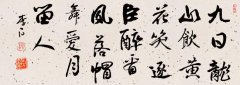 九日龍
山飲黃
花笑逐
臣醉看
風落帽
舞愛月
留人